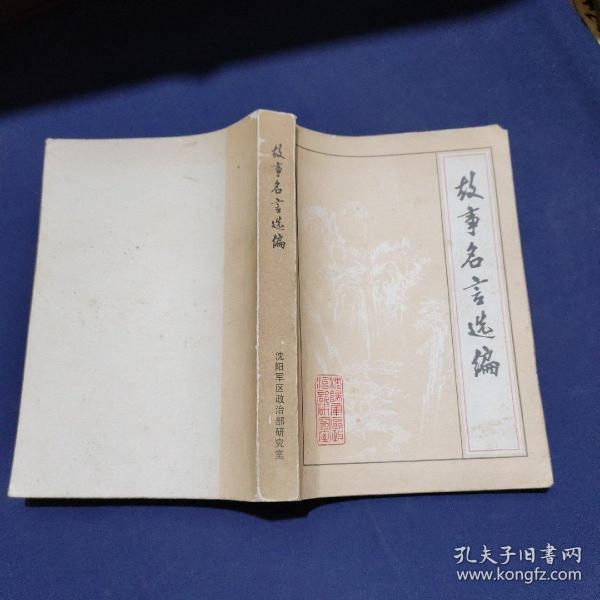 故事名言选编
沈阳军区政治部研究室
故事名言选编
沈阳军区政
治部研究室
孔夫子旧书网
www.kongfz.com